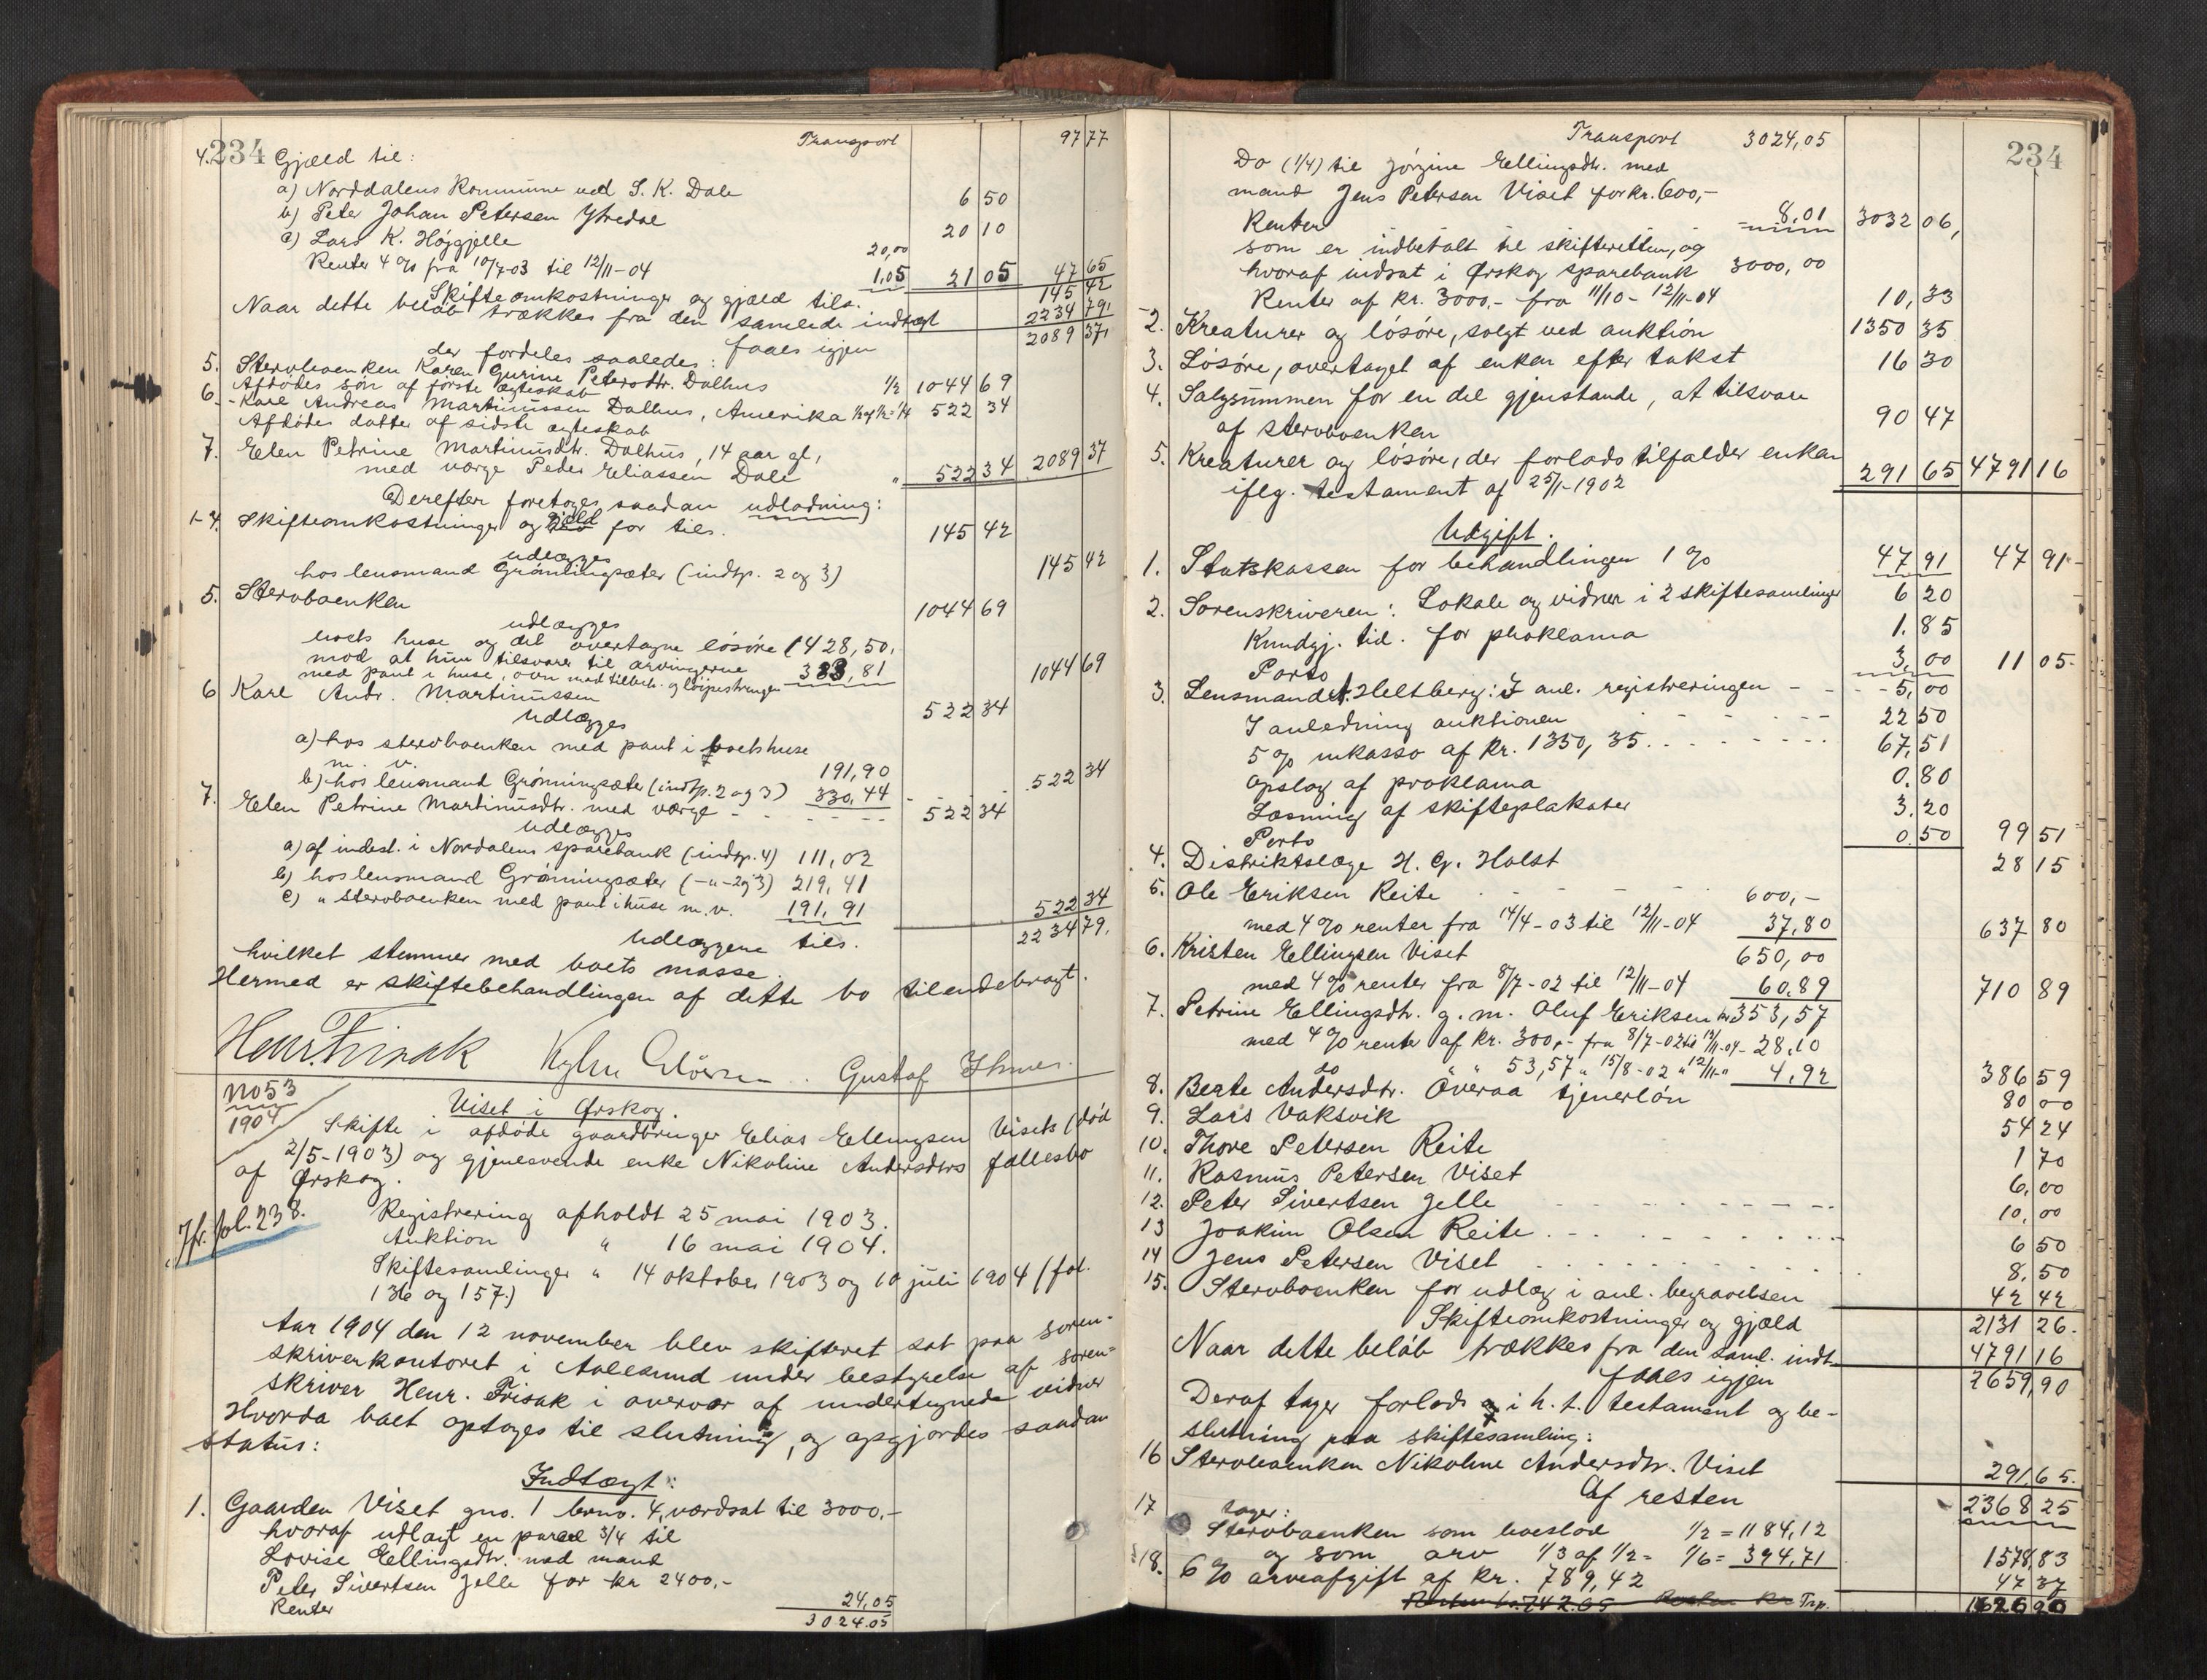 234
Transport 97 77
4. Gjæld til:
a) Norddalens Kommune ved S. K. Dale 6 50
b) Peter Johan Petersen Ytredal 20 10
c) Lars K. Højgjelle 20,00
Renter 4 % fra 10/7-03 til 12/11-04 1,05 21 05 47 65
Skifteomkostninger og gjæld tils. 145 42
Naar dette beløb trækkes fra den samlede indtægt 2234 79,
faaes igjen 2089 37,
der fordeles saaledes:
5. Stervboenken Karen Gurine Petersdtr. Dalhus 1/2 1044 69
Afdødes søn af første ægteskab
6. Karl Andreas Martinussen Dalhus, Amerika 1/2 af 1/2 = 1/4 522 34
Afdødes datter af sidste ægteskab
7. Elen Petrine Martinusdtr. Dalhus, 14 aar gl,
med værge Peder Eliassen Dale " 522 34 2089 37
Derefter foretoges saadan udlodning:
1-4. Skifteomkostninger og gjæld for tils. 145 42
udlægges
hos lensmand Grønningsæter (indtp. 2 og 3) 145 42
5. Stervboenken 1044 69
udlægges
boets huse og det overtagne løsøre (1428,50,
mod at hun tilsvarer til arvingerne
med pant i huse, ovn med tilbeh. og løipestrenger 383,81 1044 69
6 Karl Andr. Martinussen 522 34
Udlægges
a) hos stervboenken med pant i boets huse
m. v. 191,90
b) hos lensmand Grønningsæter (indtp. 2 og 3) 330,44 522 34
7. Elen Petrine Martinusdtr. med værge 522 34
Udlægges
a) af indest. i Nordalens sparebank (indtp. 4) 111,02
b) hos lensmand Grønningsæter (-"-2 og 3) 219,41
c) " stervboenken med pant i huse m.v. 191,91 522 34
Udlæggene tils. 2234 79.
hvilket stemmer med boets masse.
Hermed er skiftebehandlingen af dette bo tilendebragt.
Henr. Frisak Gustaf
No 53
1904
Viset i Ørskog.
Skifte i afdøde gaardbruger Elias Ellingsen Visets (død
2/5-1903) og gjenlevende enke Nikoline Andersdtrs fællesbo
af Ørskog.
Jfr. fol. 238.
Registrering afholdt 25 mai 1903.
Auktion " 16 mai 1904.
Skiftesamlinger " 14 oktober 1903 og 10 juli 1904 (fol.
136 og 157.)
Aar 1904 den 12 november blev skifteret sat paa soren-
skriverkontoret i Aalesund under bestyrelse af soren-
skriver Henr. Frisak i overvær af undertegnede vidner
Hvorda boet optoges til slutning, og opgjordes saadan
status:
Indtægt:
1. Gaarden Viset gno. 1 brno. 4, værdsat til 3000,-
hvoraf udlagt en parcel 3/4 til
Lovise Ellingsdtr. med mand
Peter Sivertsen Jelle for kr 2400,-
Renter 24,05
3024.05
234
Transport 3024,05
Do (1/4) til Jørgine Ellingsdtr. med
mand Jens Petersen Viset for kr. 600,-
Renter 8,01 3032 06,
som er indbetalt til skifteretten, og
hvoraf indsat i Ørskog sparebank 3000,00
Renter af kr. 3000,- fra 11/10 - 12/11-04 10,33
2. Kreaturer og løsøre, solgt ved auktion 1350 35
3. Løsøre, overtaget af enken efter takst 16 30
4. Salgsummen for en del gjenstande, at tilsvare
af stervboenken 90 47
5. Kreaturer og løsøre, der forlods tilfalder enken
iflg. testament af 25/1-1902 291 65 4791 16
Udgift.
1. Statskassen for behandlingen 1 % 47 91 47 91
2. Sorenskriveren: Lokale og vidner i 2 skiftesamlinger 6 20
Kundgj. tid. for proklama 1.85
Porto 3,00 11 05
3. Lensmand A. Heltberg: I anl. registreringen 5,00
I anledning auktionen 22 50
5 % inkasso af kr. 1350,35 67,51
Opslag af proklama 0.80
Læsning af skifteplakater 3.20
Porto 0.50 99 51
4. Distriktslæge H. G. Holst 28 15
5. Ole Eriksen Reite 600,-
med 4 % renter fra 14/4-03 til 12/11-04 37,80 637 80
6. Kristen Ellingsen Viset 650,00
med 4 % renter fra 8/7-02 til 12/11-04 60.89 710 89
7. Petrine Ellingsdtr. g. m. Oluf Eriksen kr 353,57
med 4 % renter af kr. 300,- fra 8/7-02 til 12/11-04 28,10
do " " 53,57 " 15/8-02 " 12/11-" 4,92 386 59
8. Berte Andersdtr. Overaa tjenerløn 80 00
9. Lars Vaksvik 54 24
10. Thore Petersen Reite 1 70
11. Rasmus Petersen Viset 6,00
12. Peter Sivertsen Jelle 10,00
13 Joakim Olsen Reite 6 50
14 Jens Petersen Viset 8.50
15. Stervboenken for udlæg i anl. begravelsen 42 42
Skifteomkostninger og gjæld 2131 26.
Naar dette beløb trækkes fra den saml. indt. 4791 16
faaes igjen 2659,90
Deraf tager forlods i h. t. testament og be-
slutning paa skiftesamling:
16 Stervboenken Nikoline Andersdtr. Viset 291,65.
Af resten 2368 25
17 tager:
Stervboenken som boeslod 1/2 = 1184,12
og som arv 1/3 af 1/2 = 1/6 = 394,71 1578,83
18. 6 % arveafgift af kr. 789,42 47 37
Trp. 1626 20